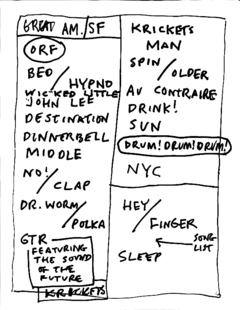 GREAT AM./SF
ORF
BED/HYPNO
WICKED LITTLE
JOHN LEE
DESTINATION
DINNERBELL
MIDDLE
NO!/CLAP
DR. WORM/POLKA
GTR
FEATURING
THE SOUND
OF THE
FUTURE
KRICKETS
KRICKETS
MAN
SPIN/OLDER
AU CONTRAIRE
DRINK!
SUN
DRUM!DRUM!DRUM!
NYC
HEY/FINGER
SONG
LIST
SLEEP